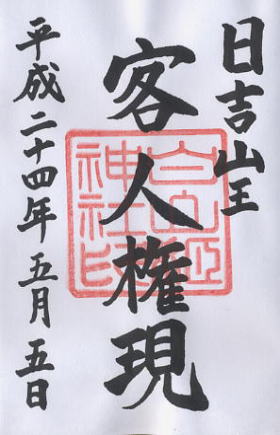 日吉山王
客人権現
平成二十四年五月五日